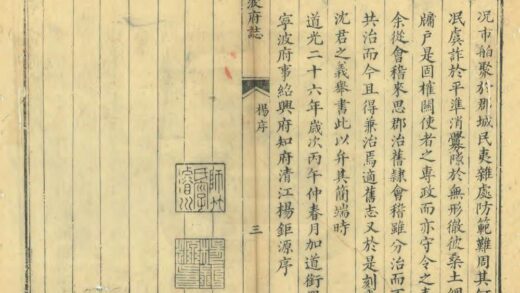 况市舶聚於郡城民夷雜處防範難周其
氓虞詐於平準消釁隙於無形徹彼桑土綢
牖戶是固榷關使者之專政而亦守令之
余從會稽來思郡治舊隸會稽雖分治而
共治而今且得兼治焉適舊志又於是刻
沈君之義舉書此以弁其簡端時
道光二十六年歲次丙午仲春月加道銜
寧波府事紹興府知府清江楊鉅源序
波府誌
楊序
三